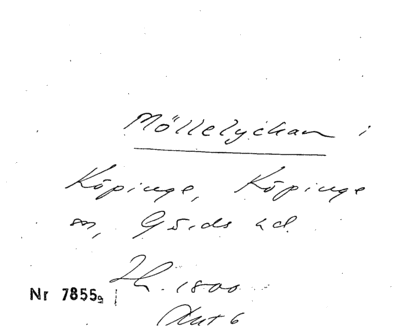 Möllelyckan i
Köpinge, Köpinge
sn, Gärds hd.
1800
Nr 7855